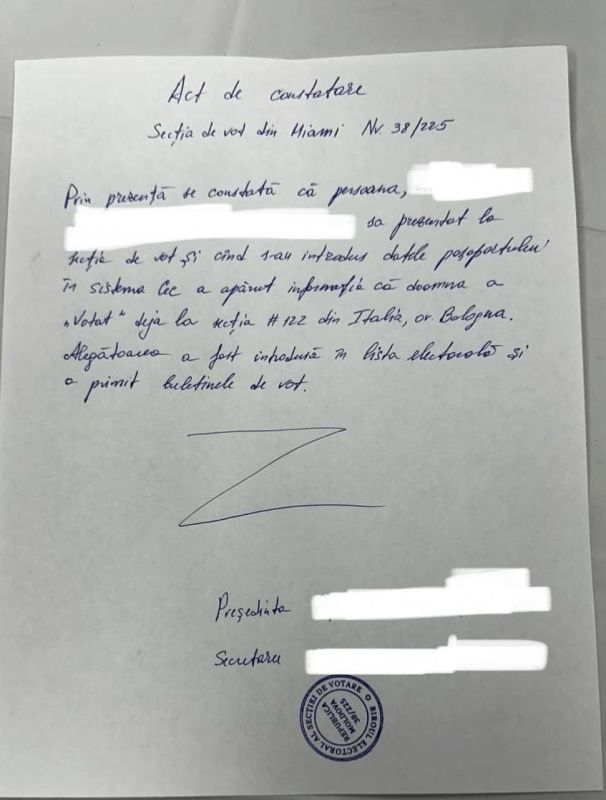 Act de constatare
Secția de vot din Miami Nr. 38/225
Prin prezență se constată că persoana,
sa prezentat la
secția de vot și cînd s-au introdus datele pașaportului
în sistema Cec a apărut informația că doamna a
„Votat" deja la secția #122 din Italia, or. Bologna.
Alegătoarea a fost introdusă în lista electorală și
a primit buletinele de vot.
Z
Președinta
Secretaru
BIROUL ELECTORAL AL SECȚIEI DE VOTARE
REPUBLICA
MOLDOVA
38/225